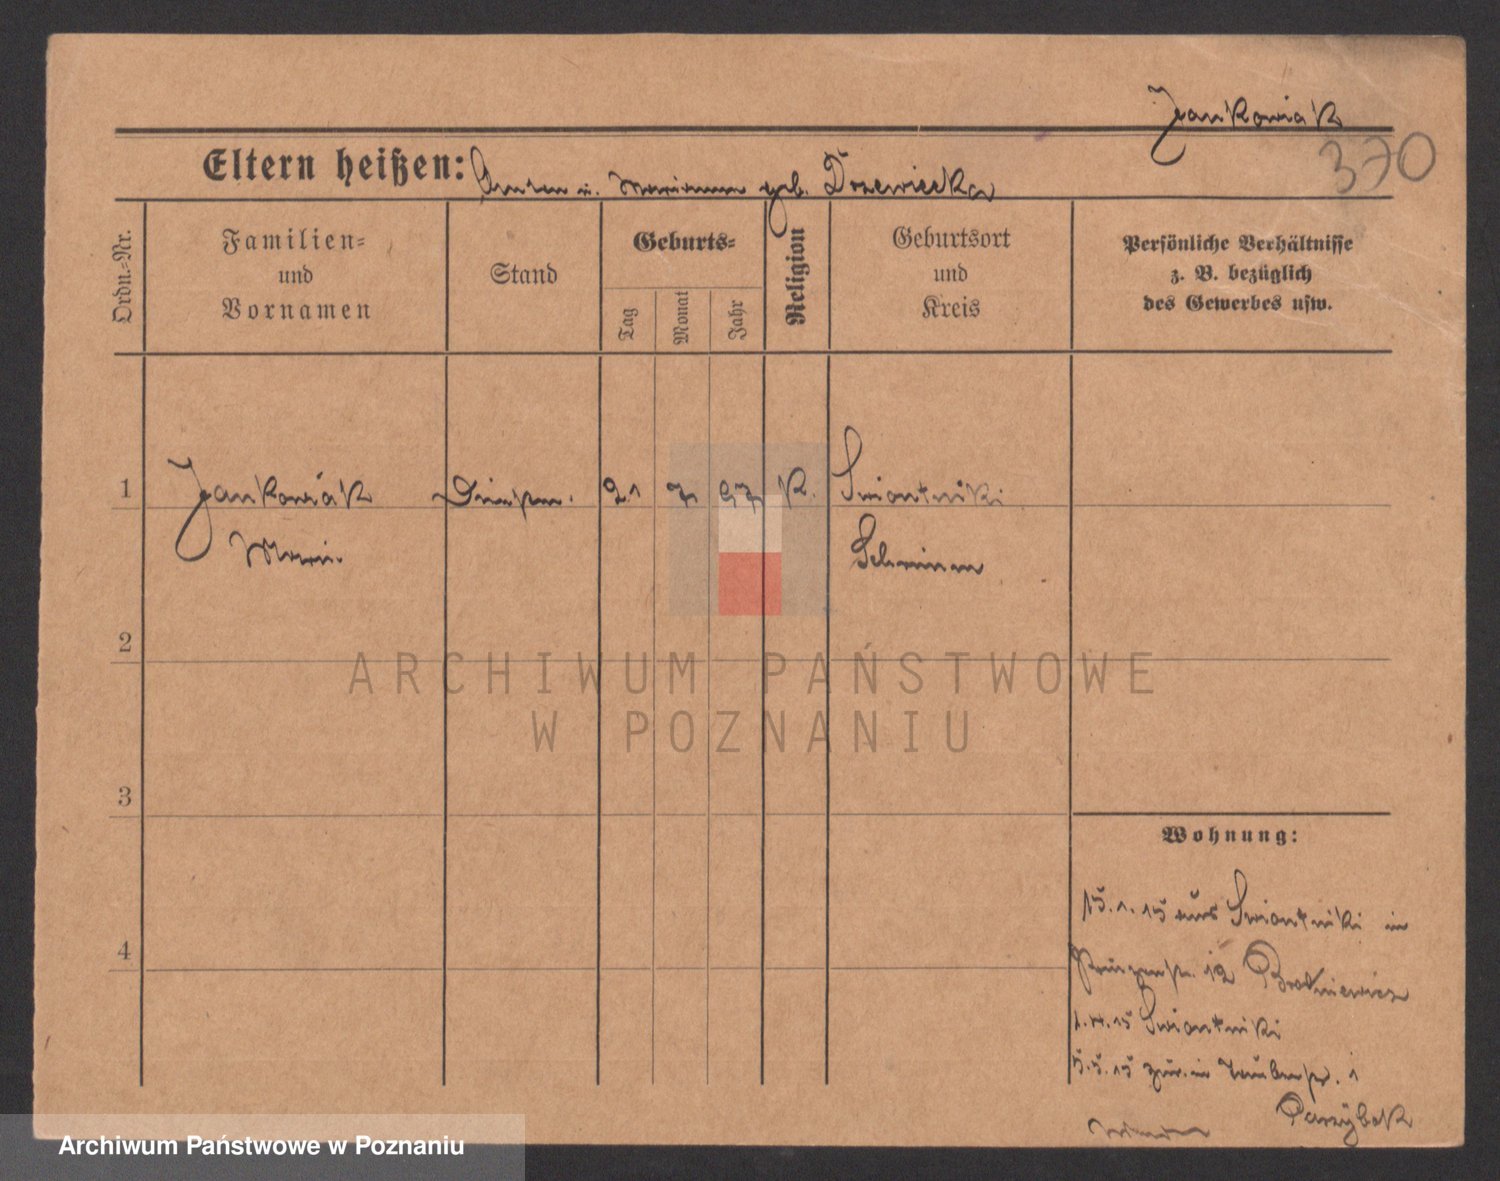 Jankowiak
370
Eltern heißen: Anton u. Marianna geb. Drzewiecka
Ordn.-Nr.
Familien-
und
Vornamen
Stand
Geburts-
Tag
Monat
Jahr
Religion
Geburtsort
und
Kreis
Persönliche Verhältnisse
z. B. bezüglich
des Gewerbes usw.
1 Jankowiak 21 7 97 K. Swiontniki
Marie Schrimm
2
ARCHIWUM PAŃSTWOWE
W POZNANIU
3
Wohnung:
15.1.15 aus Swiontniki in
12
4
Swiontniki
5.5.15 zur. in 1
Parzybok
Archiwum Państwowe w Poznaniu